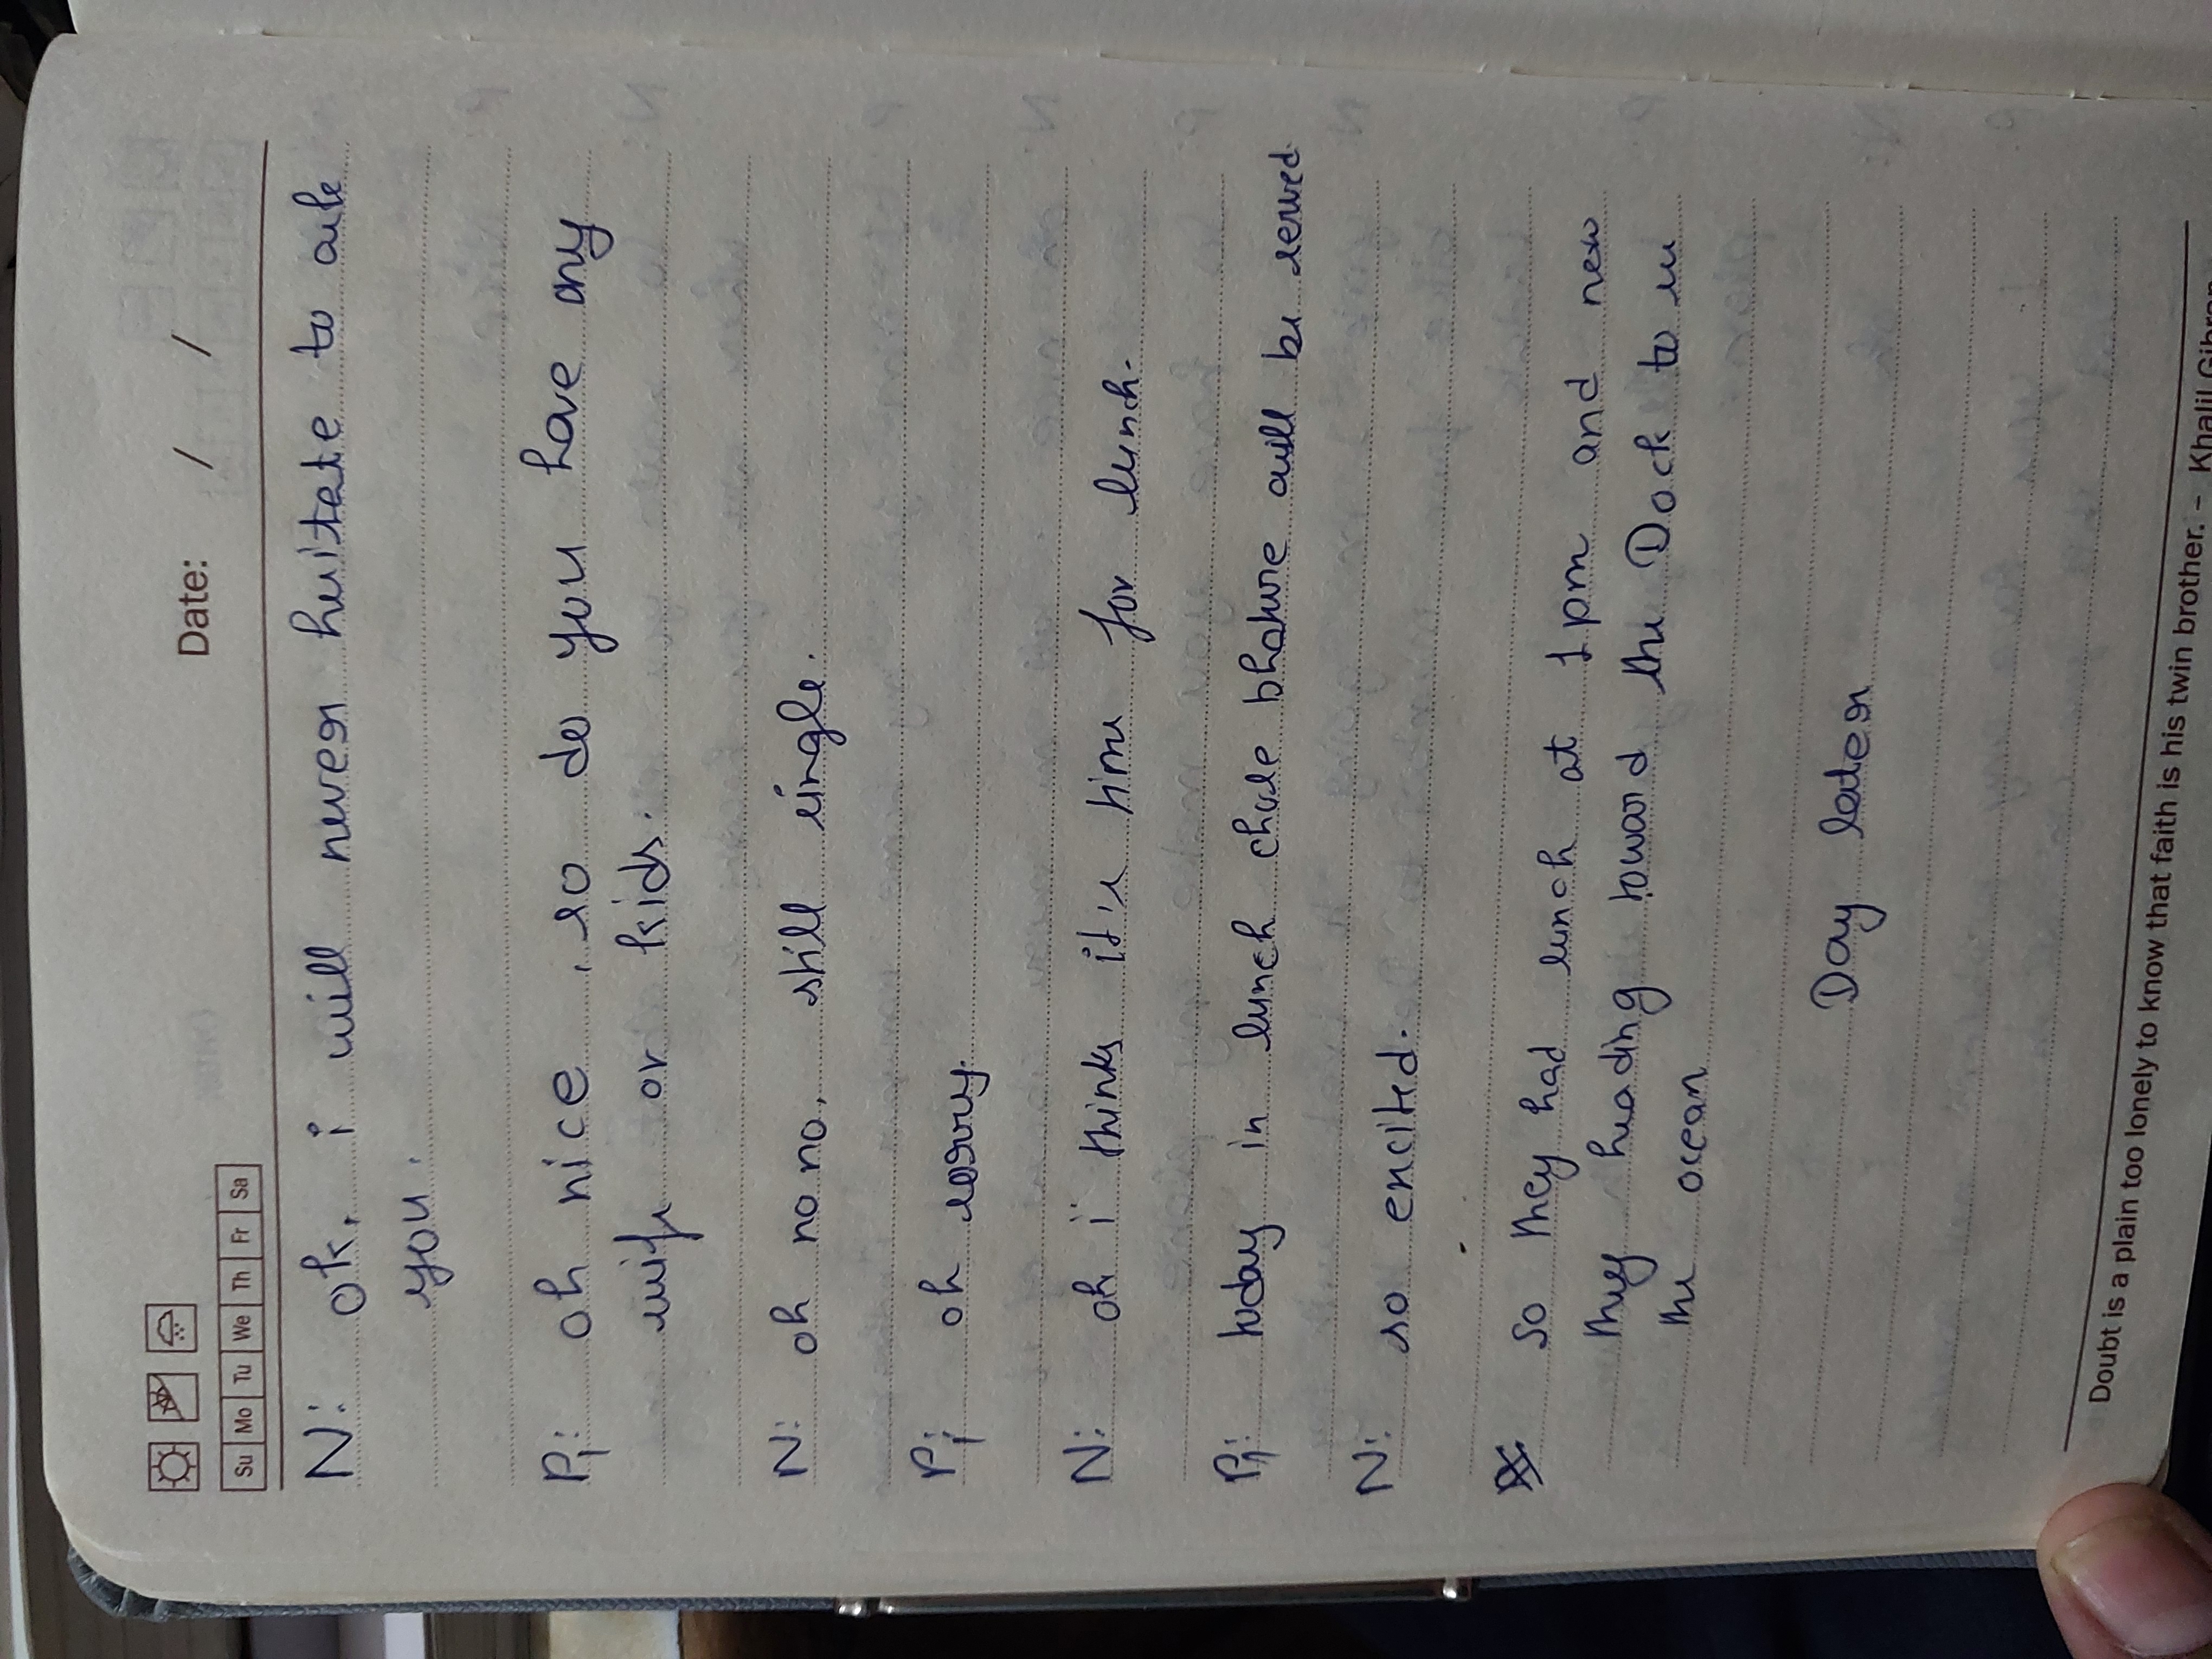 Date: / /
Su Mo Tu We Th Fr Sa
N: ok, i will never hesitate to ask
you.
P: oh nice, so do you have any
wife or kids.
N: oh no no, still single.
P: oh sorry.
N: oh i thinks it's time for lunch.
P: today in lunch chole bhature will be served.
N: so excited.
So they had lunch at 1pm and now
they heading toward the Dock to see
the ocean
Day later
Doubt is a plain too lonely to know that faith is his twin brother. – Khalil Gibran